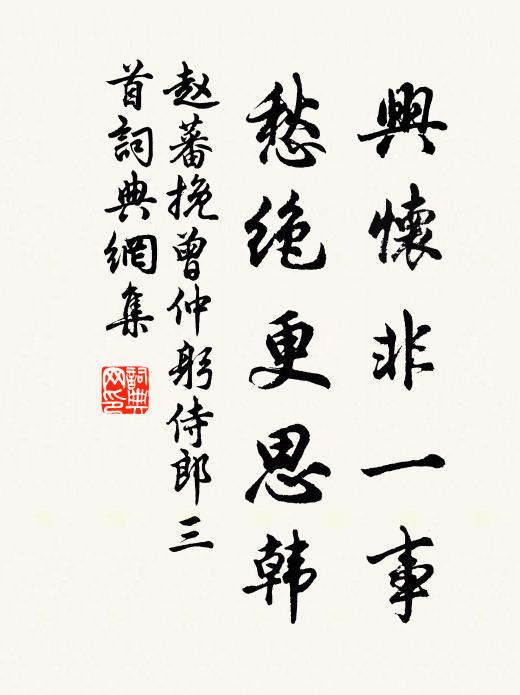 興懷非一事
愁绝更思韩
赵蕃挽曾仲躬侍郎三
首詞典網集
詞典网印